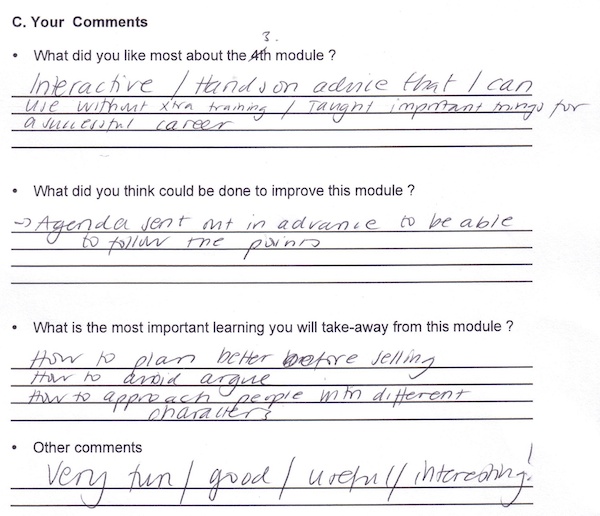 C. Your Comments
3.
• What did you like most about the 4th module ?
Interactive / Hands on advice that I can
use without xtra training / Taught important things for
a successful career
• What did you think could be done to improve this module ?
→ Agenda sent out in advance to be able
to follow the points
• What is the most important learning you will take-away from this module ?
How to plan better before selling
How to avoid argue
How to approach people with different
characters
• Other comments
Very fun / good / useful / interesting!